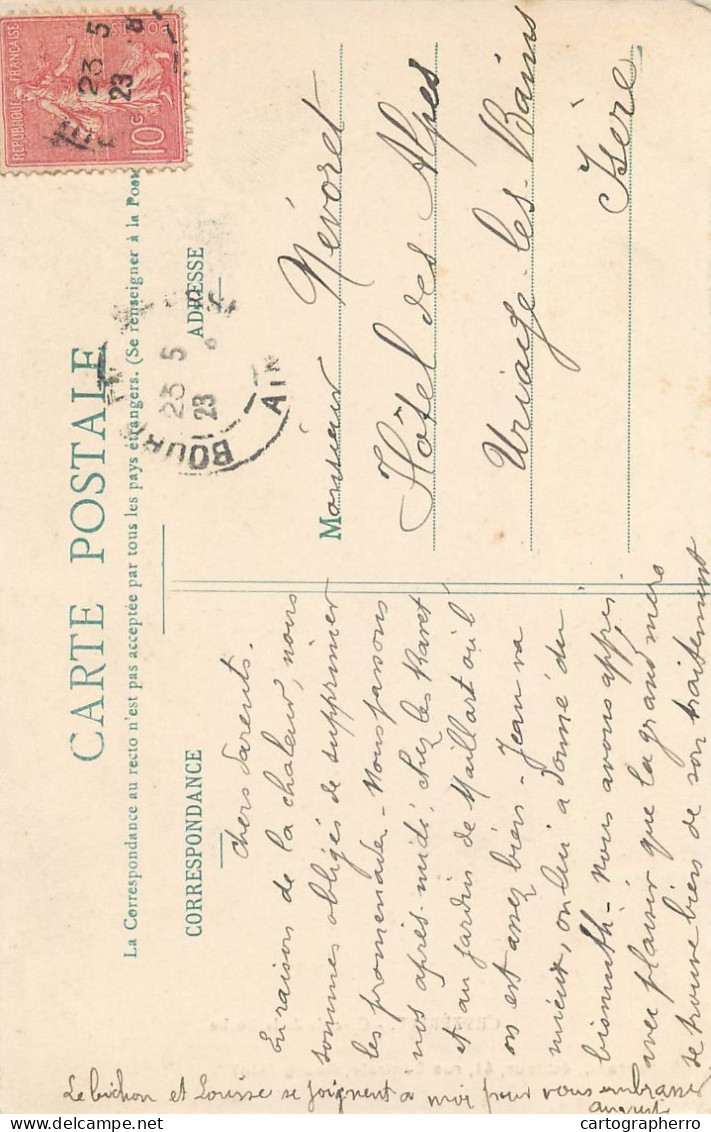 CARTE POSTALE
La Correspondance au recto n'est pas acceptée par tous les pays étrangers. (Se renseigner à la Poste
CORRESPONDANCE
ADRESSE
REPUBLIQUE FRANÇAISE
POSTES
10 C
23 5
23
BOUR
23 5
23
AIN
Chers Parents.
En raison de la chaleur, nous
sommes obligés de supprimer
les promenades - Nous passons
nos après-midi, chez les Baret
et au jardin de Maillart où l'
on est assez bien - Jean va
mieux, on lui a donné du
bismuth - Nous avons appri
avec plaisir que la grand mère
se trouve bien de son traitement
Le bichon et Louise se joignent à moi pour vous embrasser
Monsieur Névoret
Hôtel des Alpes
Uriage-les-Bains
Isère
cartographerro